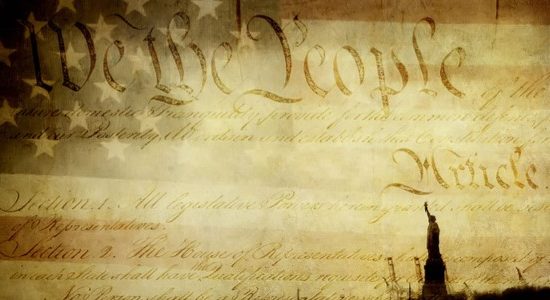 We the People
of the
domestic Tranquility, provide for the common defence,
and our Posterity, do ordain and establish this Constitution
Article.
Section. 1. All legislative Powers herein granted shall be vest
of Representatives.
Section. 2. The House of Representatives shall be composed of
in each State shall have the Qualifications requisite
No Person shall be a